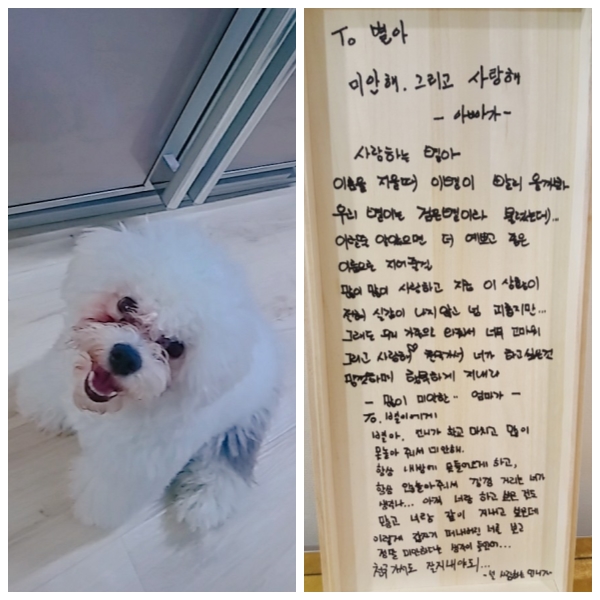 To 별아
미안해. 그리고 사랑해
- 아빠가 -
사랑하는 별아
이름을 지을때 이별이 빨리 올까봐
우리 별이는 검은별이라 불렀는데...
이럴줄 알았으면 더 예쁘고 좋은
이름으로 지어줄걸
많이 많이 사랑하고 지금 이 상황이
전혀 실감이 나지 않고 넘 괴롭지만...
그래도 우리 가족으로 와줘서 너무 고마워
그리고 사랑해♡ 천국가서 너가 하고싶은것
맘껏하며 행복하게 지내라
- 많이 미안한.. 엄마가 -
To. 별이에게
별아. 언니가 학교 마치고 많이
못놀아 줘서 미안해.
항상 내방에 못들어오게 하고,
항상 안놀아줘서 낑낑 거리는 너가
생각나... 아직 너랑 하고 싶은 것도
많고 너랑 같이 지내고 싶은데
이렇게 갑자기 떠나버린 너를 보고
정말 미안하다는 생각이 들었어...
천국 가서도 잘지내야되...
- 언니가 -